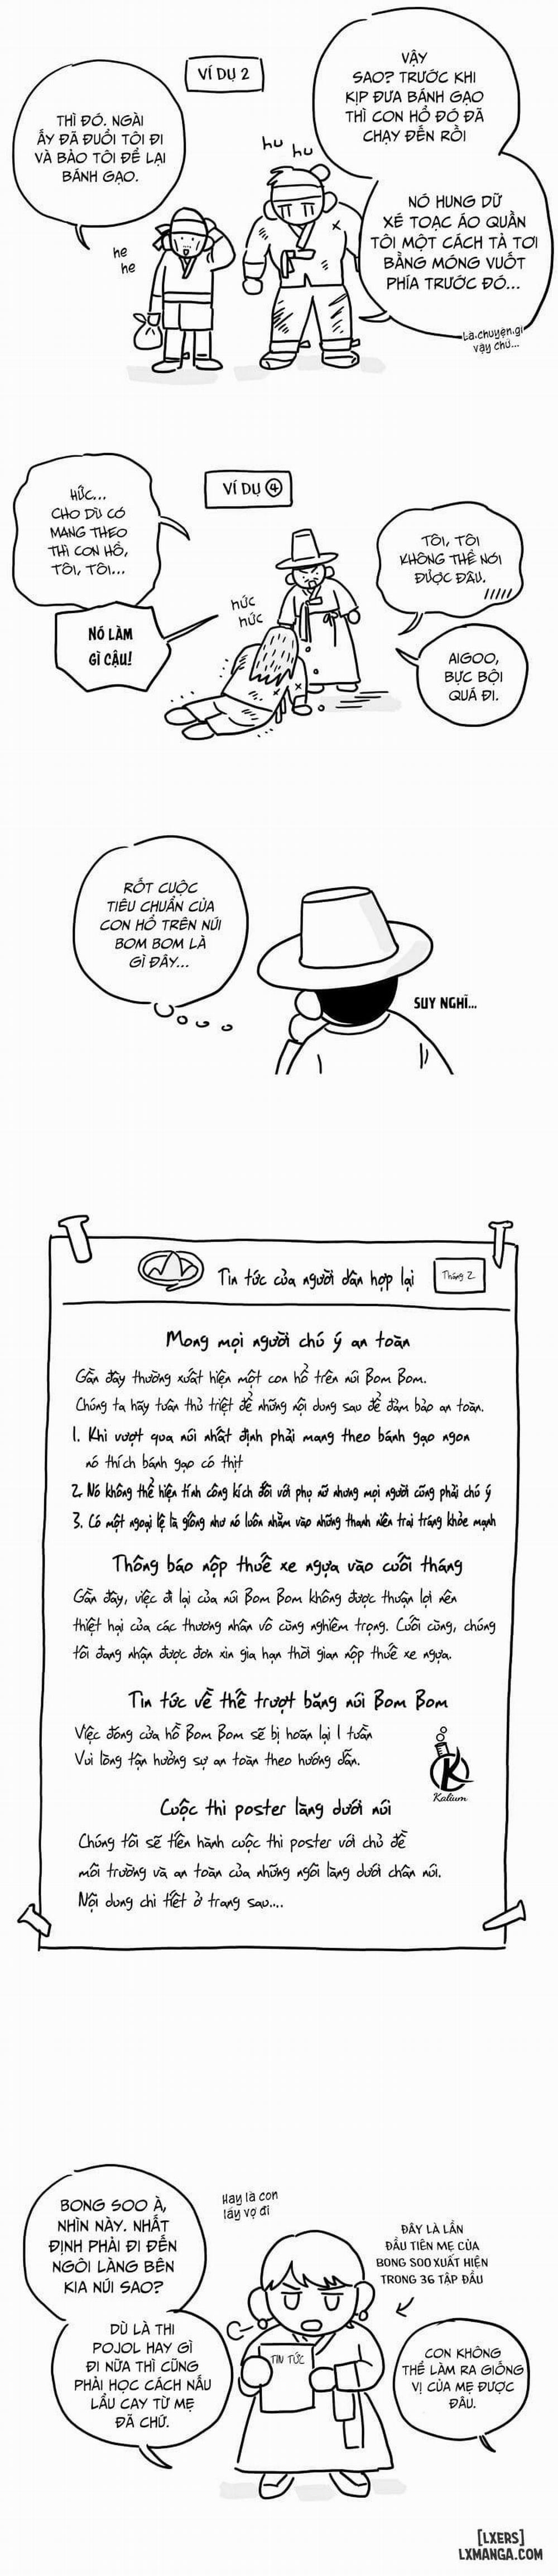 VÍ DỤ 2
THÌ ĐÓ. NGÀI
ẤY ĐÃ ĐUỔI TÔI ĐI
VÀ BẢO TÔI ĐỂ LẠI
BÁNH GẠO.
VẬY
SAO? TRƯỚC KHI
KỊP ĐƯA BÁNH GẠO
THÌ CON HỔ ĐÓ ĐÃ
CHẠY ĐẾN RỒI
NÓ HUNG DỮ
XÉ TOẠC ÁO QUẦN
TÔI MỘT CÁCH TẢ TƠI
BẰNG MÓNG VUỐT
PHÍA TRƯỚC ĐÓ...
hu hu
he
he
Là chuyện gì
vậy chứ...
VÍ DỤ ④
HỨC...
CHO DÙ CÓ
MANG THEO
THÌ CON HỔ,
TÔI, TÔI...
NÓ LÀM
GÌ CẬU!
hức
hức
TÔI, TÔI
KHÔNG THỂ NÓI
ĐƯỢC ĐÂU.
AIGOO,
BỰC BỘI
QUÁ ĐI.
RỐT CUỘC
TIÊU CHUẨN CỦA
CON HỔ TRÊN NÚI
BOM BOM LÀ
GÌ ĐÂY...
SUY NGHĨ...
Tin tức của người dân hợp lại
Tháng 2
Mong mọi người chú ý an toàn
Gần đây thường xuất hiện một con hổ trên núi Bom Bom.
Chúng ta hãy tuân thủ triệt để những nội dung sau để đảm bảo an toàn.
1. Khi vượt qua núi nhất định phải mang theo bánh gạo ngon
nó thích bánh gạo có thịt
2. Nó không thể hiện tính công kích đối với phụ nữ nhưng mọi người cũng phải chú ý
3. Có một ngoại lệ là giống như nó luôn nhắm vào những thanh niên trai tráng khỏe mạnh
Thông báo nộp thuế xe ngựa vào cuối tháng
Gần đây, việc đi lại của núi Bom Bom không được thuận lợi nên
thiệt hại của các thương nhân vô cùng nghiêm trọng. Cuối cùng, chúng
tôi đang nhận được đơn xin gia hạn thời gian nộp thuế xe ngựa.
Tin tức về thế trượt băng núi Bom Bom
Việc đóng cửa hồ Bom Bom sẽ bị hoãn lại 1 tuần
Vui lòng tận hưởng sự an toàn theo hướng dẫn.
K
Kalium
Cuộc thi poster làng dưới núi
Chúng tôi sẽ tiến hành cuộc thi poster với chủ đề
môi trường và an toàn của những ngôi làng dưới chân núi.
Nội dung chi tiết ở trang sau....
BONG SOO À,
NHÌN NÀY. NHẤT
ĐỊNH PHẢI ĐI ĐẾN
NGÔI LÀNG BÊN
KIA NÚI SAO?
Hay là con
lấy vợ đi
ĐÂY LÀ LẦN
ĐẦU TIÊN MẸ CỦA
BONG SOO XUẤT HIỆN
TRONG 36 TẬP ĐẦU
DÙ LÀ THI
POJOL HAY GÌ
ĐI NỮA THÌ CŨNG
PHẢI HỌC CÁCH NẤU
LẨU CAY TỪ MẸ
ĐÃ CHỨ.
TIN TỨC
CON KHÔNG
THỂ LÀM RA GIỐNG
VỊ CỦA MẸ ĐƯỢC
ĐÂU.
[LXERS]
LXMANGA.COM